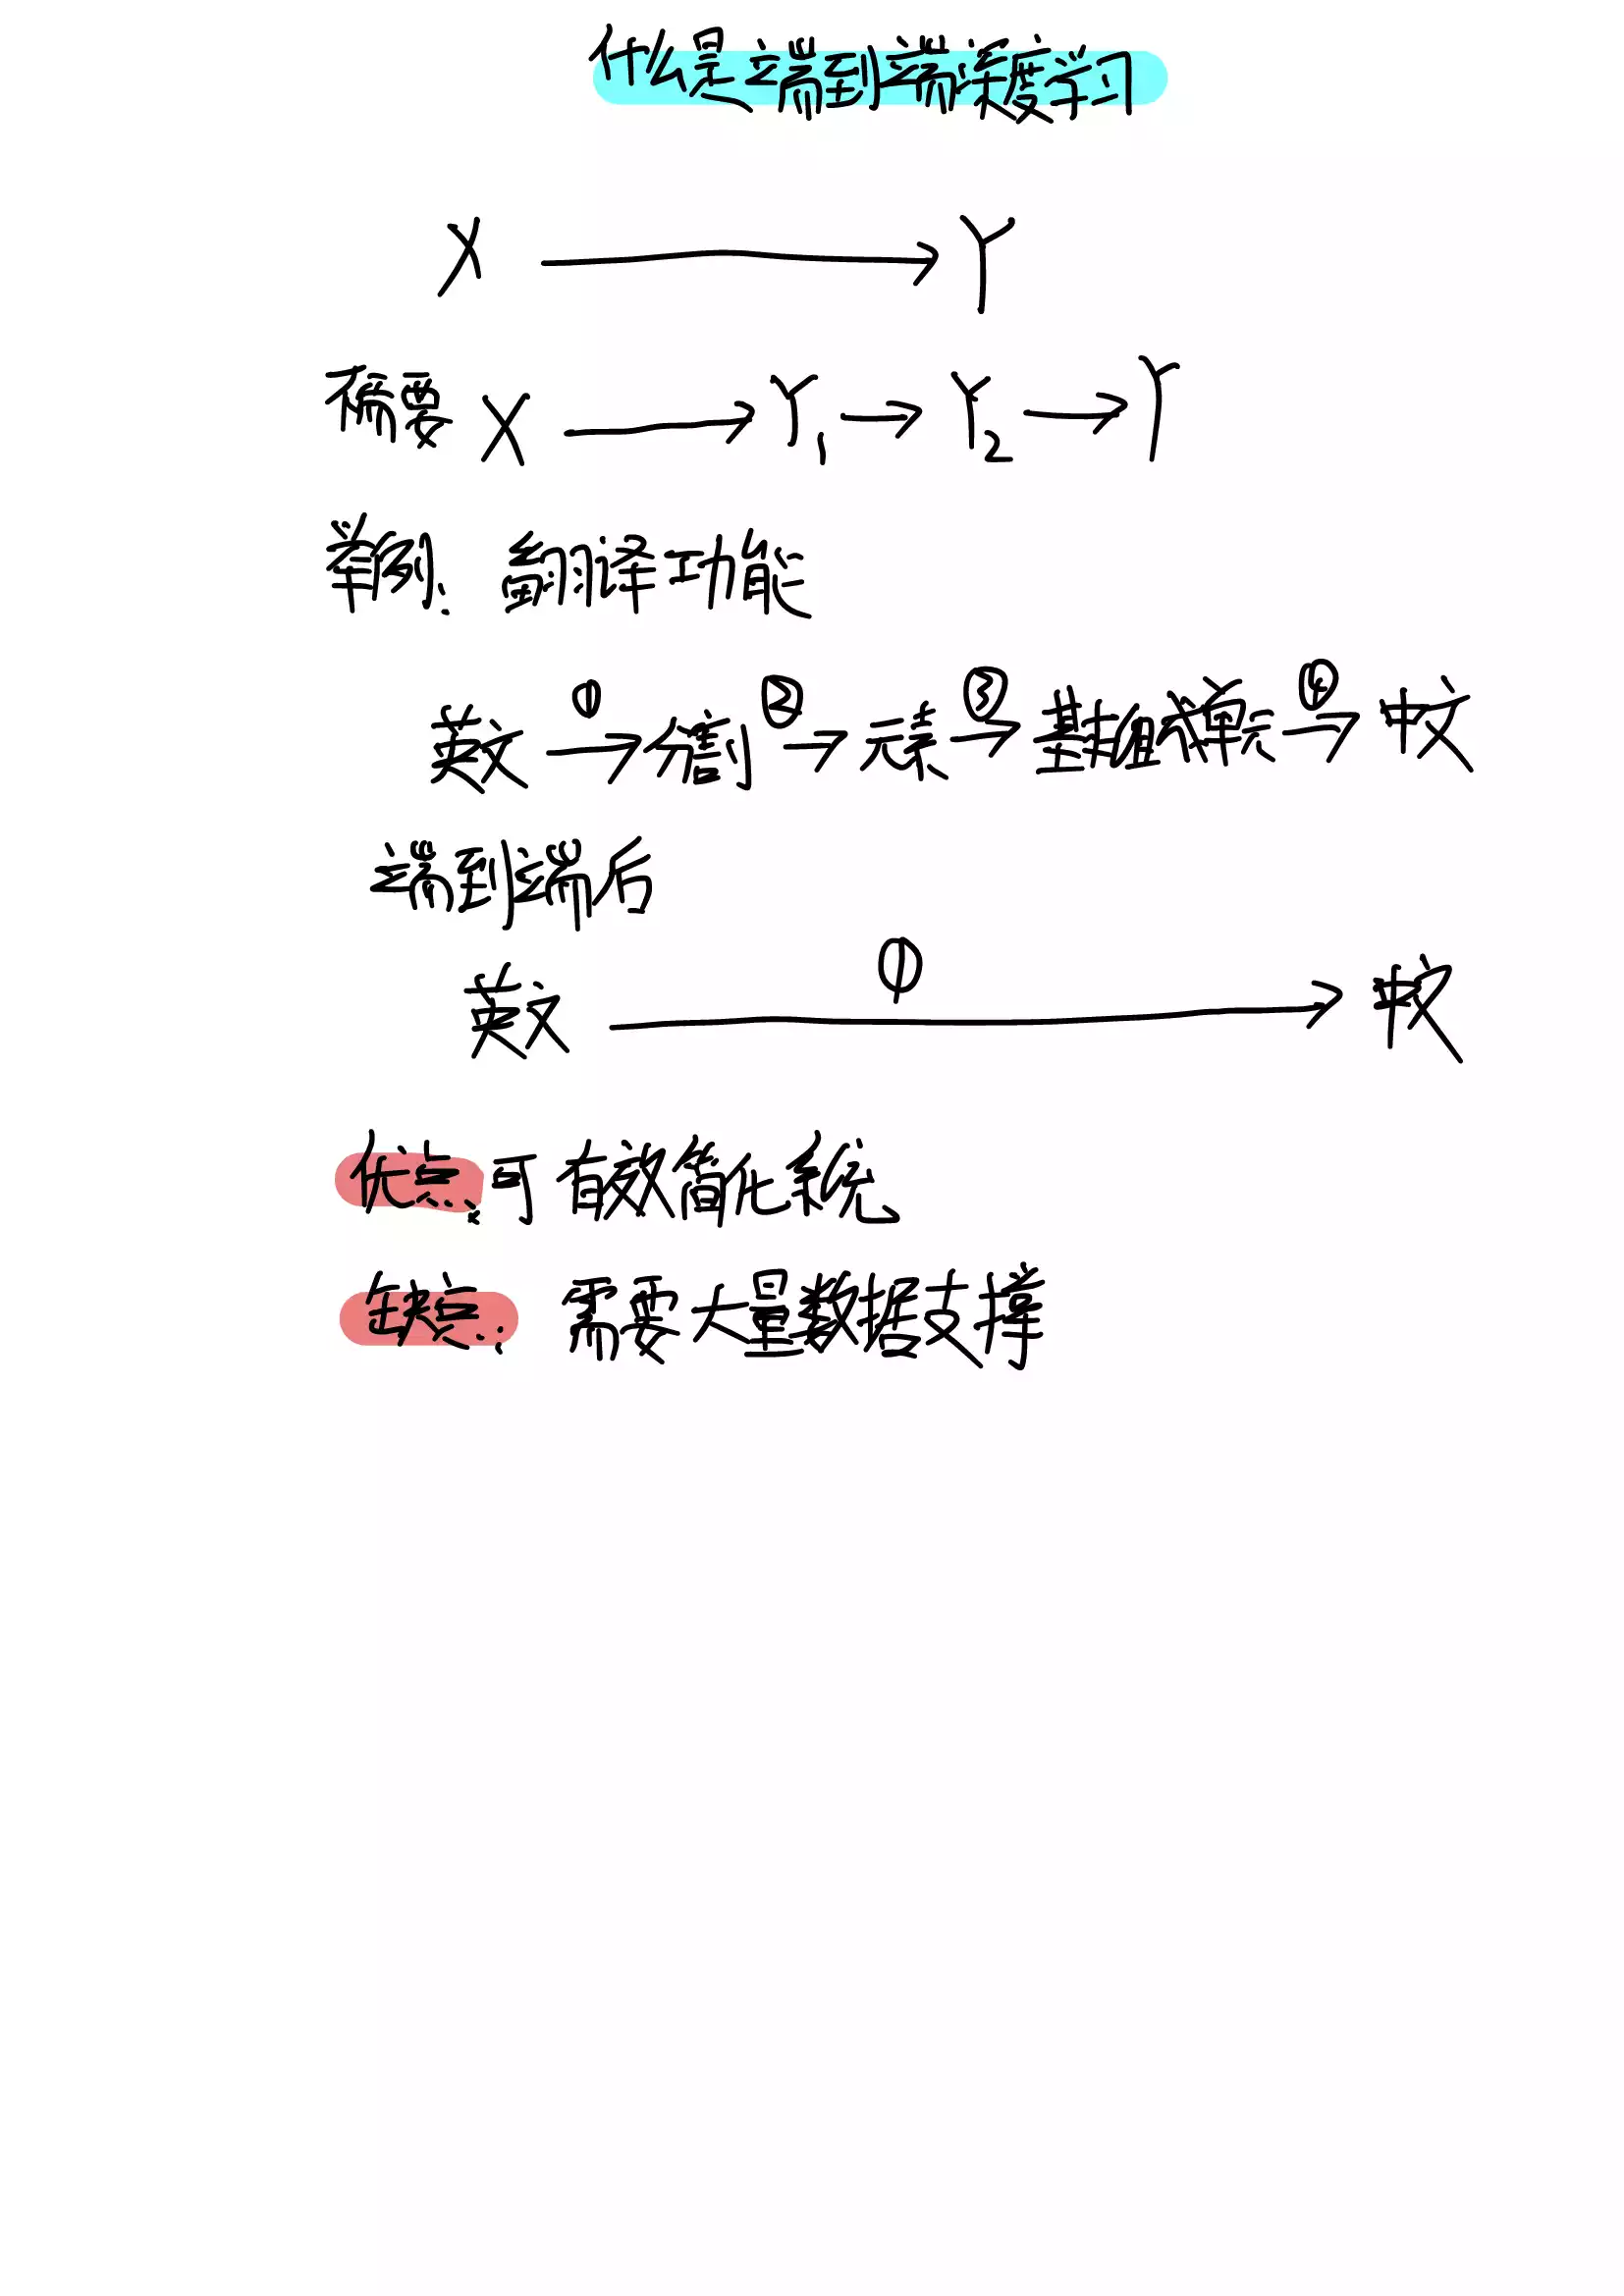 什么是端到端深度学习
X → Y
不需要 X → Y₁ → Y₂ → Y
举例：翻译功能
英文 ①→ 分割 ②→ 元素 ③→ 基本组成单元 ④→ 中文
端到端后
英文 ①→ 中文
优点：可有效简化系统
缺点：需要大量数据支撑